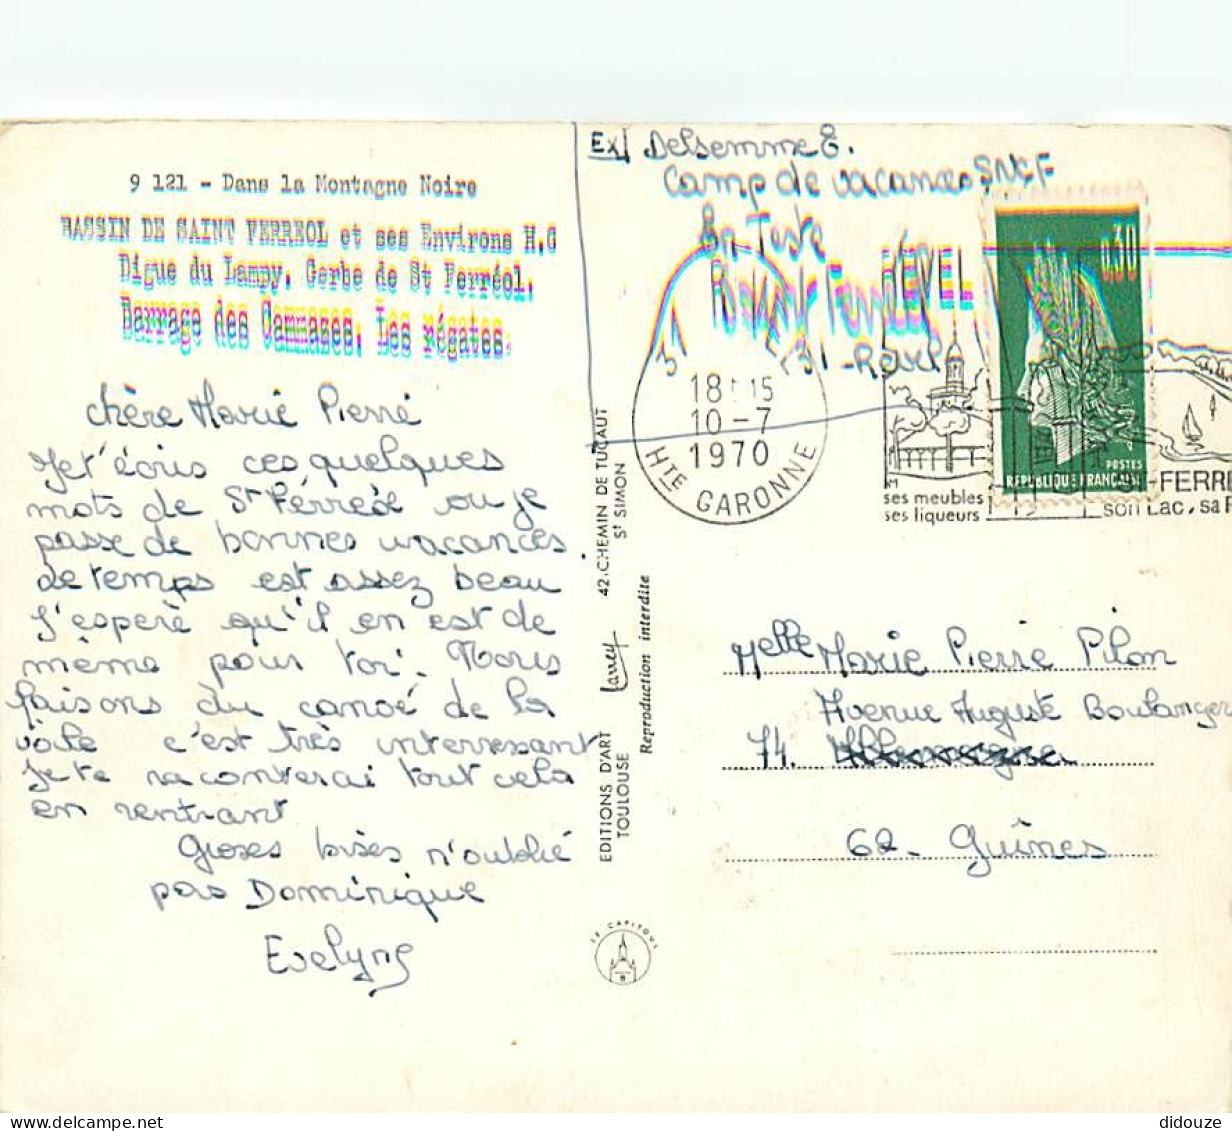 9 121 - Dans la Montagne Noire
BASSIN DE SAINT FERREOL et ses Environs H.G
Digue du Lampy. Gerbe de St Ferréol.
Barrage des Cammazes. Les régates.
chère Marie Pierre
Je t'écris ces quelques
mots de St Férréol ou je
passe de bonnes vacances.
Le temps est assez beau
J'esperé qu'il en est de
même pour toi. Nous
faisons du canoé de la
voile c'est très interressant
Je te raconterai tout cela
en rentrant
Groses bises n'oublié
pas Dominique
Evelyne
EDITIONS D'ART Larrey 42, CHEMIN DE TUCAUT
TOULOUSE St SIMON
Reproduction interdite
LE CAPITOUL
Ex/ Delsemme E.
Camp de vacances SNCF
En Teste
31 - Revel
REVEL
31
18H15
10-7
1970
HTE GARONNE
ses meubles
ses liqueurs
ST-FERRE
son Lac, sa P
0,30
POSTES
REPUBLIQUE FRANÇAISE
Melle Marie Pierre Pilon
Avenue Auguste Boulanger
74.
62 - Guînes
didouze
© delcampe.net